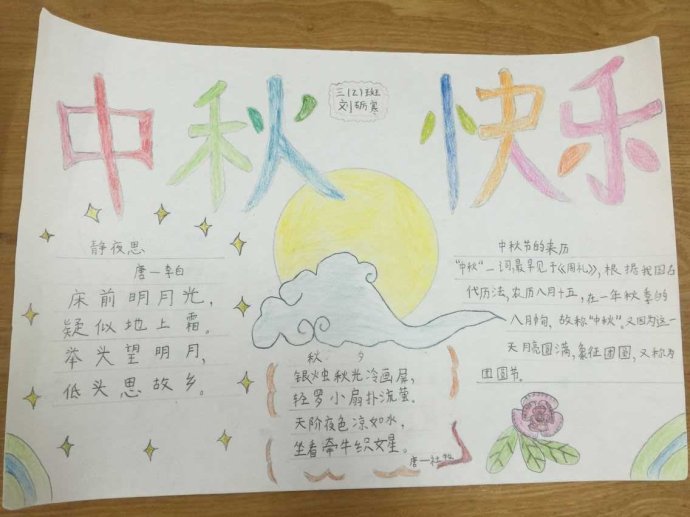 中秋快乐
三(2)班
刘砺寒
静夜思
唐一李白
床前明月光,
疑似地上霜。
举头望明月,
低头思故乡。
秋夕
银烛秋光冷画屏,
轻罗小扇扑流萤。
天阶夜色凉如水,
坐看牵牛织女星。
唐一杜牧
中秋节的来历
"中秋"一词,最早见于《周礼》,根据我国古
代历法,农历八月十五,在一年秋季的
八月中旬,故称"中秋"。又因为这一
天月亮圆满,象征团圆,又称为
团圆节。